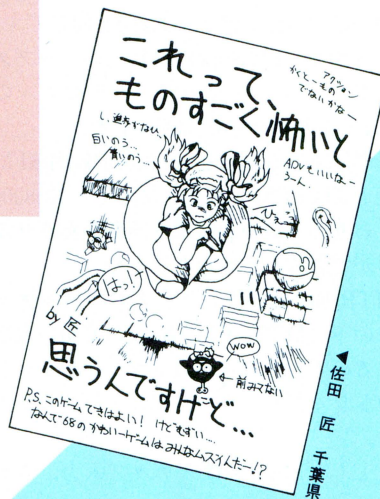 これって、
ものすごく、怖いと
アクション
かくとーもの
でないかなー
し、進歩がない。
白いのう…
黄いのう…
ADVもいいなー
うーん。
ぴゅー
はっ!
by 匠
WOW
←前みてない
思うんですけど…
P.S. このゲームできはよい! けどむずい…
なんで68のかわいーゲームはみんなムズイんだー!?
◀佐田 匠 千葉県